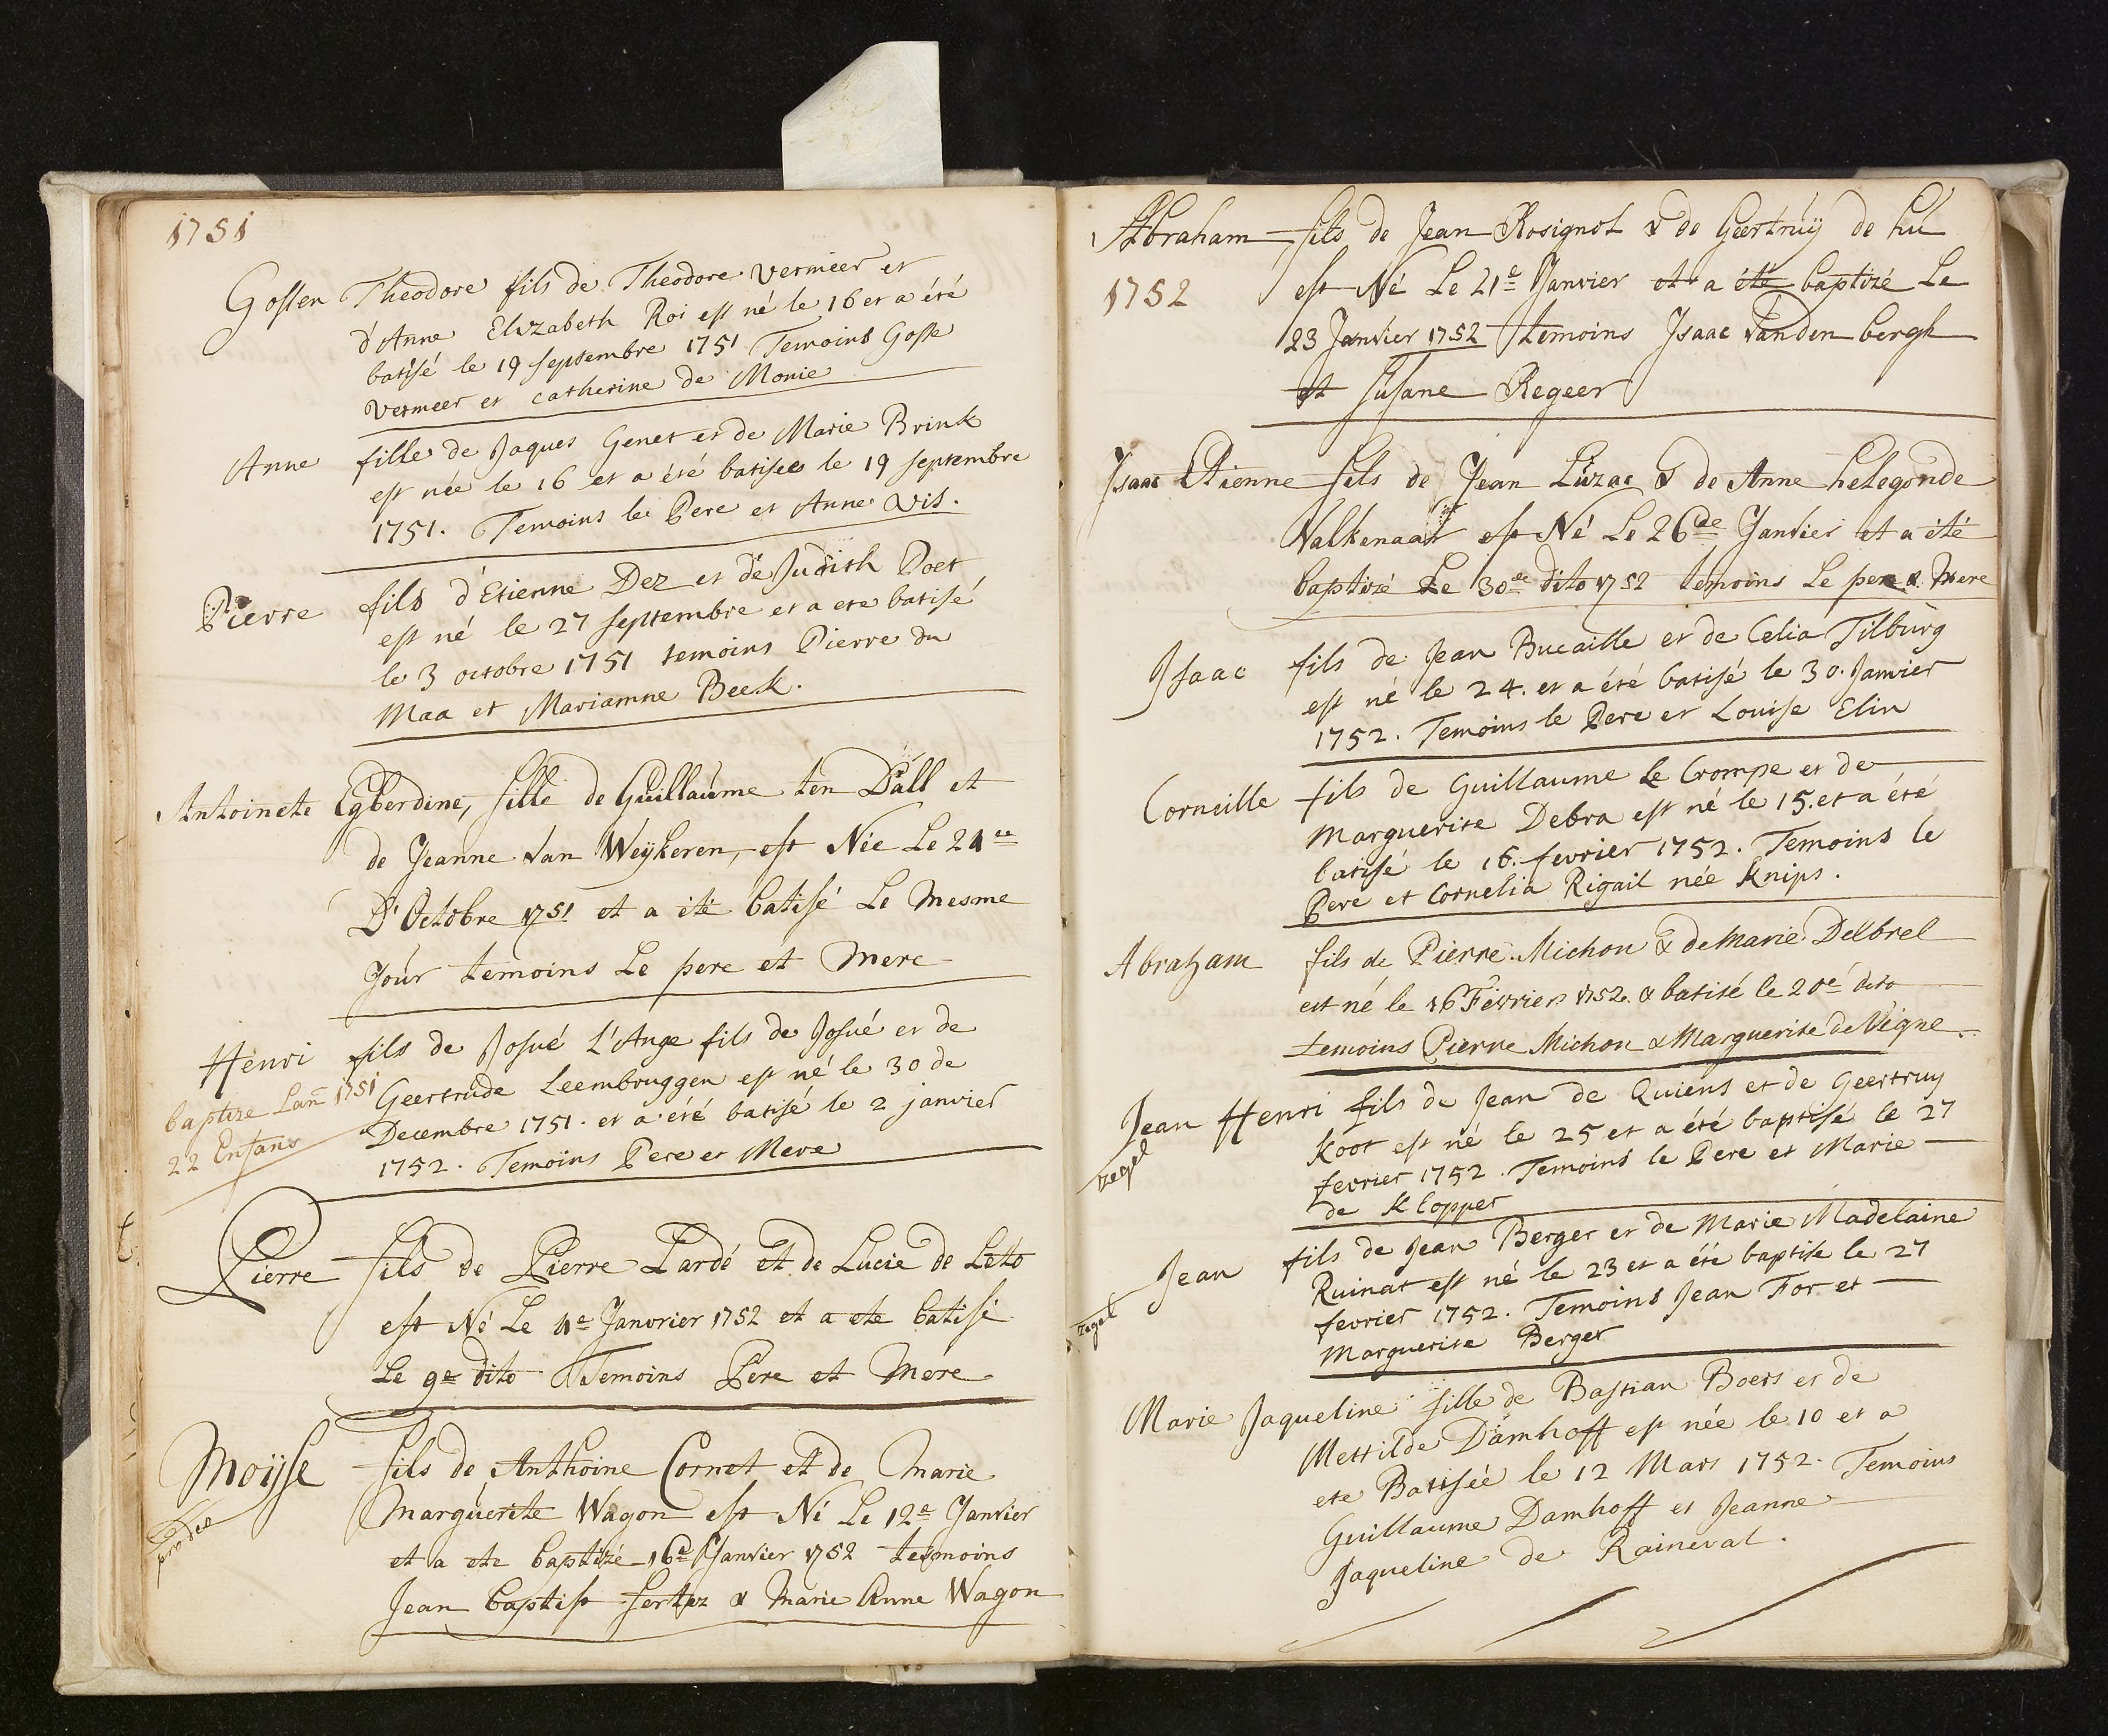 1751
Gossen Theodore fils de Theodore Vermeer et
d'Anne Elizabeth Roi est né le 16 et a été
batisé le 19 septembre 1751 Temoins Gosse
Vermeer et catherine de Monie
Anne fille de Jaques Genet et de Marie Brink
est née le 16 et a été batisée le 19 septembre
1751. Temoins le Pere et Anne Vis.
Pierre fils d'Etienne Dez et de Judith Poet
est né le 27 septembre et a ete batisé
le 3 octobre 1751 temoins Pierre du
Maa et Marianne Beek.
Antoinete Egberdine, fille de Guillaume ten Dall et
de Jeanne Van Weykeren, est Née Le 24ee
D'Octobre 1751 et a été batisé Le Mesme
Jour temoins Le pere et Mere
Henri fils de Josué L'Ange fils de Josué et de
Geertrude Leembruggen est né le 30 de
baptize Lan 1751
Decembre 1751. et a été batisé le 2 janvier
22 Enfans
1752. Temoins Pere et Mere
Pierre fils de Pierre Lardé et de Lucie de Leto
est Né Le 4e Janvrier 1752 et a ete batisé
Le 9e dito Temoins Père et Mere
Moÿse fils de Anthoine Cornet et de Marie
Marguerite Wagon est Né Le 12e Janvier
prodeo
et a ete baptizé 16e Janvier 1752 temoins
Jean baptist fertez & Marie Anne Wagon
Abraham fils de Jean Rosignol & de Geertruÿ de Lu
1752
est Né Le 21e Janvier et a été baptizé Le
23 Janvier 1752 temoins Isaac Vanden bergh
et Susane Regeer
Isaac Etienne fils de Jean Luzac & de Anne helegonde
Valkenaar est Né Le 26de Janvier et a été
baptizé Le 30de dito 1752 temoins Le pere & Mere
Isaac fils de Jean Bucaille et de Celia Tilburg
est né le 24. et a été batisé le 30. Janvier
1752. Temoins le Pere et Louise Elin
Corneille fils de Guillaume Le Crompe et de
Marguerite Debra est né le 15. et a été
batisé le 16. fevrier 1752. Temoins le
Pere et Cornelia Rigail née Knips.
Abraham fils de Pierre Michon & de Marie Delbrel
est né le 16 Février 1752. & batisé le 20e dito
temoins Pierre Michon & Marguerite de Vigne
Jean Henri fils de Jean de Quiens et de Geertruy
Koot est né le 25 et a été baptisé le 27
zegel
fevrier 1752. Temoins le Pere et Marie
de Klopper
Jean fils de Jean Berger et de Marie Madelaine
Ruinat est né le 23 et a été baptise le 27
zegel
fevrier 1752. Temoins Jean For et
Marguerite Berger
Marie Jaqueline fille de Bastian Boers et de
Mettilde Damhoff est née le 10 et a
ete Batisée le 12 Mars 1752. Temoins
Guillaume Damhoff et Jeanne
Jaqueline de Raineval.